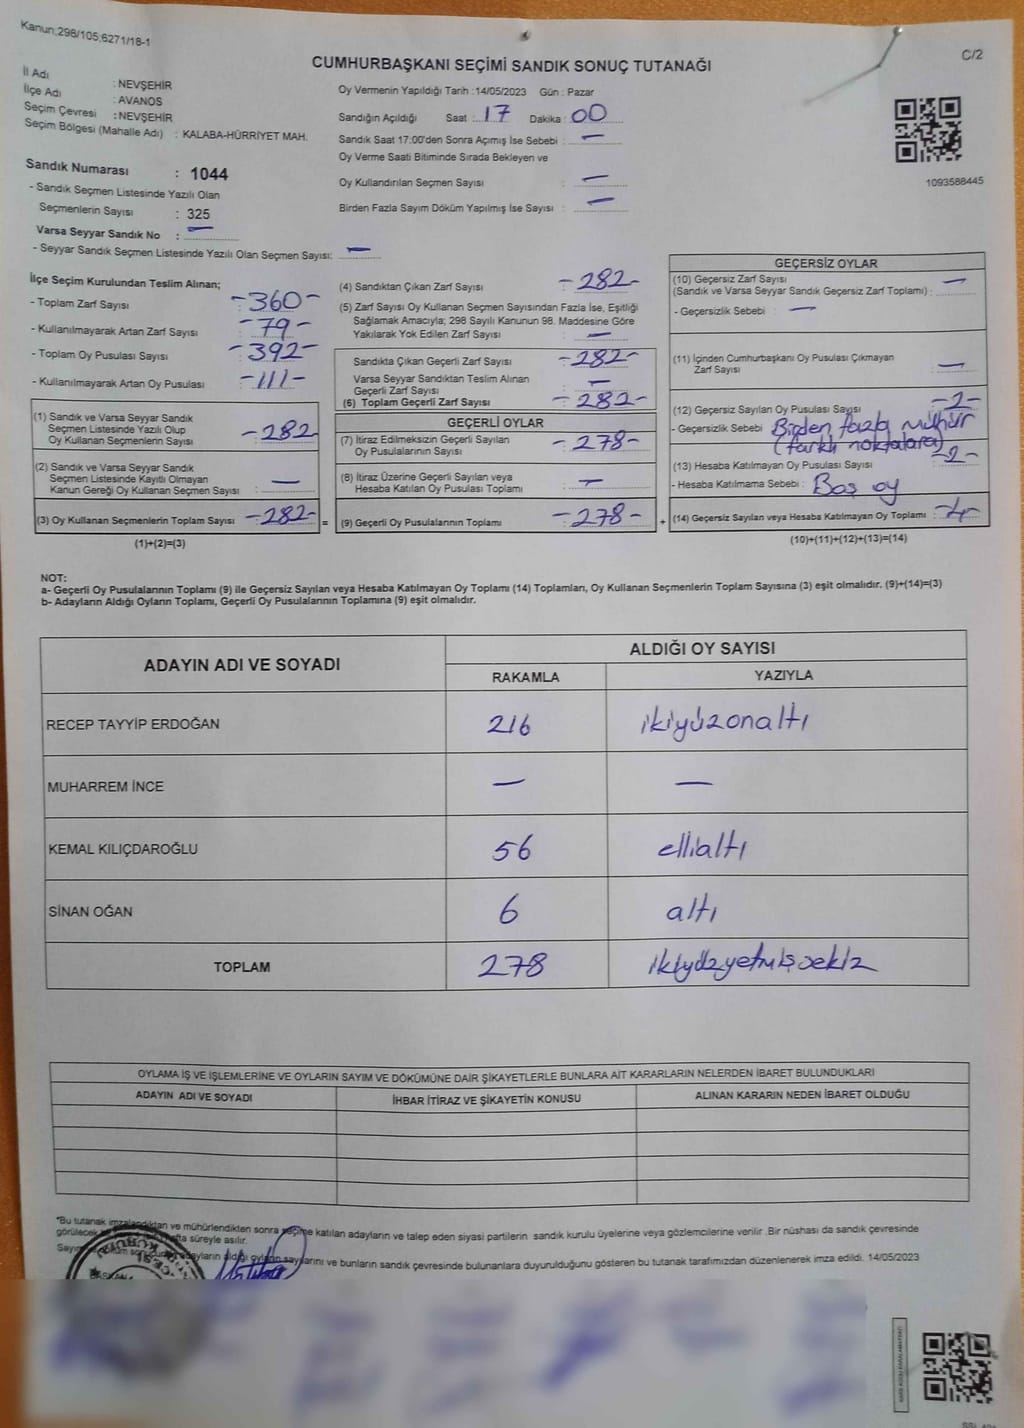 Kanun;298/105;6271/18-1
C/2
CUMHURBAŞKANI SEÇİMİ SANDIK SONUÇ TUTANAĞI
İl Adı : NEVŞEHİR
İlçe Adı : AVANOS
Seçim Çevresi : NEVŞEHİR
Seçim Bölgesi (Mahalle Adı) : KALABA-HÜRRİYET MAH.
Oy Vermenin Yapıldığı Tarih :14/05/2023 Gün : Pazar
Sandığın Açıldığı Saat : 17 Dakika : 00
Sandık Saat 17:00'den Sonra Açımış İse Sebebi : —
Oy Verme Saati Bitiminde Sırada Bekleyen ve
Oy Kullandırılan Seçmen Sayısı : —
Birden Fazla Sayım Döküm Yapılmış İse Sayısı : —
1093588445
Sandık Numarası : 1044
- Sandık Seçmen Listesinde Yazılı Olan
Seçmenlerin Sayısı : 325
Varsa Seyyar Sandık No : —
- Seyyar Sandık Seçmen Listesinde Yazılı Olan Seçmen Sayısı: —
İlçe Seçim Kurulundan Teslim Alınan;
- Toplam Zarf Sayısı -360-
- Kullanılmayarak Artan Zarf Sayısı -79-
- Toplam Oy Pusulası Sayısı -392-
- Kullanılmayarak Artan Oy Pusulası -111-
(1) Sandık ve Varsa Seyyar Sandık
Seçmen Listesinde Yazılı Olup
Oy Kullanan Seçmenlerin Sayısı -282-
(2) Sandık ve Varsa Seyyar Sandık
Seçmen Listesinde Kayıtlı Olmayan
Kanun Gereği Oy Kullanan Seçmen Sayısı : —
(3) Oy Kullanan Seçmenlerin Toplam Sayısı -282- =
(1)+(2)=(3)
(4) Sandıktan Çıkan Zarf Sayısı -282-
(5) Zarf Sayısı Oy Kullanan Seçmen Sayısından Fazla İse, Eşitliği
Sağlamak Amacıyla; 298 Sayılı Kanunun 98. Maddesine Göre
Yakılarak Yok Edilen Zarf Sayısı : —
Sandıkta Çıkan Geçerli Zarf Sayısı -282-
Varsa Seyyar Sandıktan Teslim Alınan
Geçerli Zarf Sayısı : —
(6) Toplam Geçerli Zarf Sayısı -282-
GEÇERLİ OYLAR
(7) İtiraz Edilmeksizin Geçerli Sayılan
Oy Pusulalarının Sayısı -278-
(8) İtiraz Üzerine Geçerli Sayılan veya
Hesaba Katılan Oy Pusulası Toplamı : —
(9) Geçerli Oy Pusulalarının Toplamı -278- +
GEÇERSİZ OYLAR
(10) Geçersiz Zarf Sayısı
(Sandık ve Varsa Seyyar Sandık Geçersiz Zarf Toplamı) : —
- Geçersizlik Sebebi : —
(11) İçinden Cumhurbaşkanı Oy Pusulası Çıkmayan
Zarf Sayısı : —
(12) Geçersiz Sayılan Oy Pusulası Sayısı -2-
- Geçersizlik Sebebi : Birden fazla mühür
(farklı noktalara)
(13) Hesaba Katılmayan Oy Pusulası Sayısı -2-
- Hesaba Katılmama Sebebi : Boş oy
(14) Geçersiz Sayılan veya Hesaba Katılmayan Oy Toplamı : -4-
(10)+(11)+(12)+(13)=(14)
NOT:
a- Geçerli Oy Pusulalarının Toplamı (9) ile Geçersiz Sayılan veya Hesaba Katılmayan Oy Toplamı (14) Toplamları, Oy Kullanan Seçmenlerin Toplam Sayısına (3) eşit olmalıdır. (9)+(14)=(3)
b- Adayların Aldığı Oyların Toplamı, Geçerli Oy Pusulalarının Toplamına (9) eşit olmalıdır.
ADAYIN ADI VE SOYADI ALDIĞI OY SAYISI
RAKAMLA YAZIYLA
RECEP TAYYİP ERDOĞAN 216 ikiyüzonaltı
MUHARREM İNCE — —
KEMAL KILIÇDAROĞLU 56 ellialtı
SİNAN OĞAN 6 altı
TOPLAM 278 ikiyüzyetmişsekiz
OYLAMA İŞ VE İŞLEMLERİNE VE OYLARIN SAYIM VE DÖKÜMÜNE DAİR ŞİKAYETLERLE BUNLARA AİT KARARLARIN NELERDEN İBARET BULUNDUKLARI
ADAYIN ADI VE SOYADI İHBAR İTİRAZ VE ŞİKAYETİN KONUSU ALINAN KARARIN NEDEN İBARET OLDUĞU
"Bu tutanak imzalandıktan ve mühürlendikten sonra seçime katılan adayların ve talep eden siyasi partilerin sandık kurulu üyelerine veya gözlemcilerine verilir. Bir nüshası da sandık çevresinde
görülecek süreyle asılır.
adayların aldığı oyların sayılarını ve bunların sandık çevresinde bulunanlara duyurulduğunu gösteren bu tutanak tarafımızdan düzenlenerek imza edildi. 14/05/2023